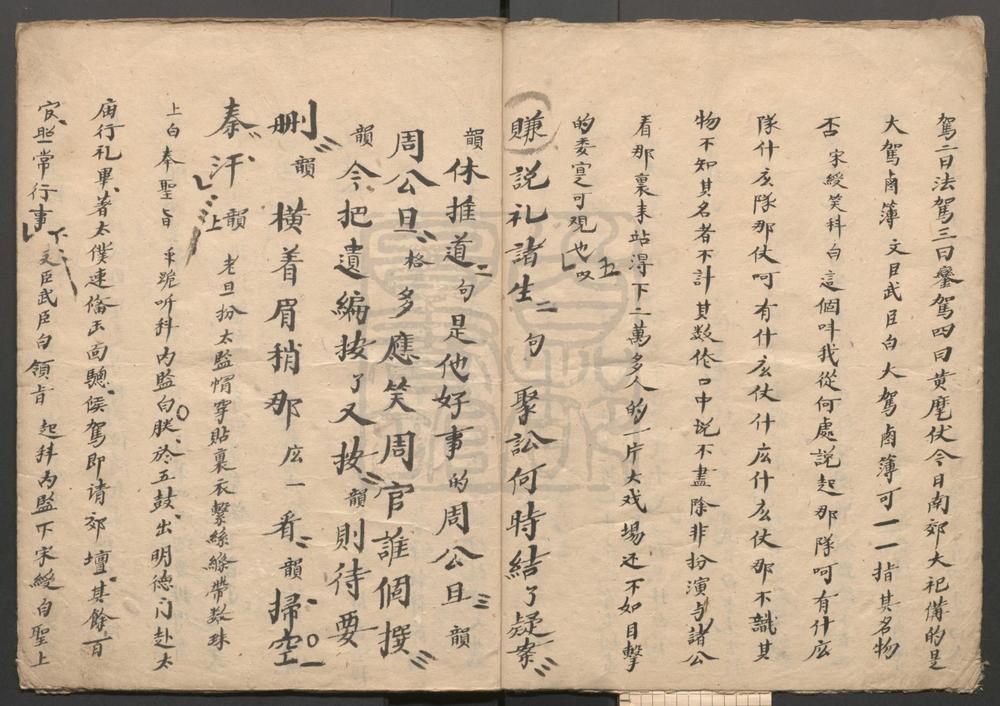 駕二曰法駕三曰鑾駕四曰黄麾仗今日南郊大祀備的是
大駕鹵簿 文目武臣白大駕鹵簿可一一指其名物
否 宋綬笑科白 這個呌我從何處說起那隊呵有什庅
隊什庅隊那仗呵有什庅仗什庅什庅仗那不識其
物不知其名者不計其数伧口中说不盡除非扮演与諸公
看那裏耒站淂下二萬多人的一片大戏塲还不如目擊
的委寔可覌也 五
賺 説礼諸生二句 聚訟何時結了疑案
韻 休推道二句是他好事的周公旦三韻
周公旦格多應笑周官誰個撰
韻 今把遺編按了又按韻則待要
删韻 横着眉稍那庅一看韻掃空
秦汗韻 上 老旦扮太監帽穿貼裏衣繫絲縧带数珠
上白奉聖旨 跪听科内監白朕於五鼓出明德门赴太
庙行礼畢着太僕速俻玉面驄候駕即请郊壇其餘百
官照常行事 下 文臣武臣白領旨 起拜内監下宋綬白聖上